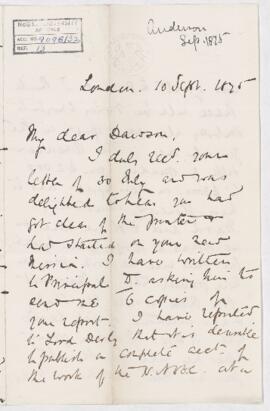 ACC. NO. 9098/32
REF. 13
Anderson
Sep. 1875
London. 10 Sept. 1875
My dear Dawson,
I duly recd. your
letter of 30 July and was
delighted to hear you had
got clear of the printer &
had started on your new
mission. I have written
to Principal D. asking him to
send me 6 copies of
your report. I have reported
to Lord Derby that it is desirable
to publish a complete acct. of
the work of the N.A.B.C. at a